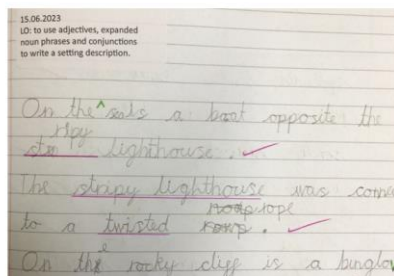 15.06.2023
LO: to use adjectives, expanded
noun phrases and conjunctions
to write a setting description.
On the ^ sails a boat opposite the
ripy
lighthouse.
The stripy lighthouse was
rope
to a twisted .
On the rocky cliff is a